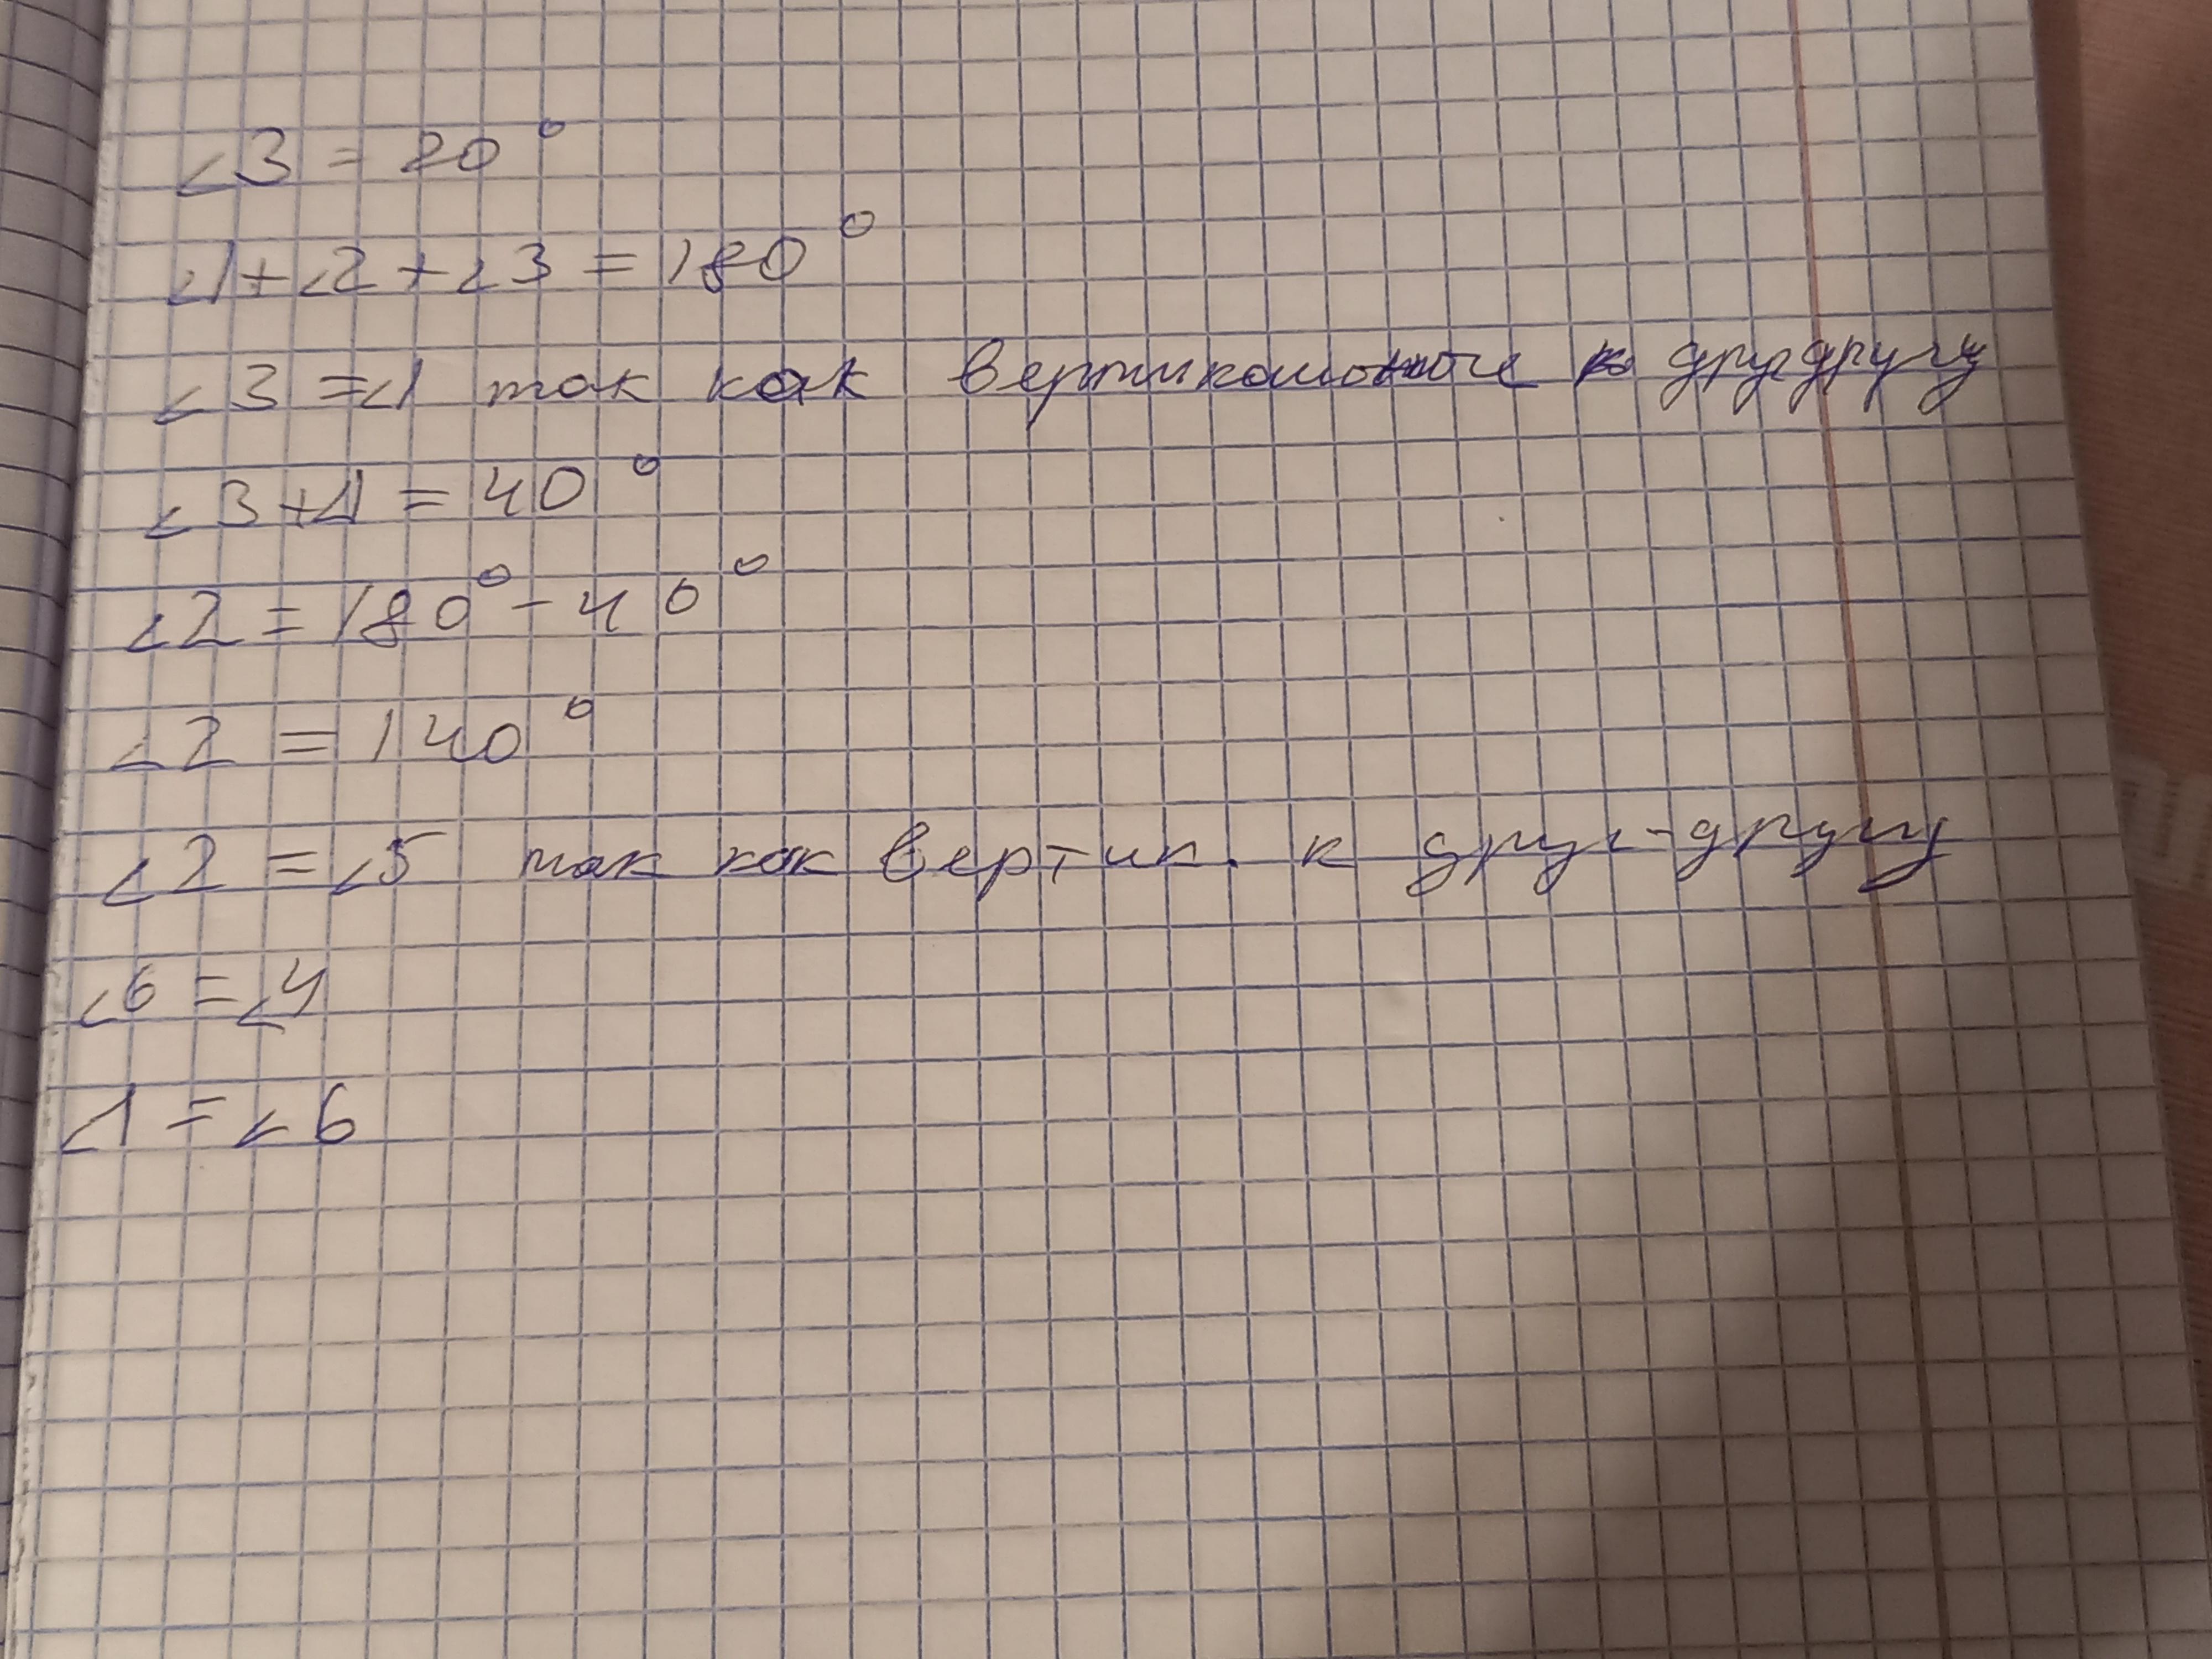 ∠3 = 20°
∠1+∠2+∠3 = 180°
∠3 =∠1 так как вертикальные к другдругу
∠3+∠1 = 40°
∠2 = 180° - 40°
∠2 = 140°
∠2 = ∠5 так как вертик. к друг-другу
∠6 = ∠4
∠1 = ∠6